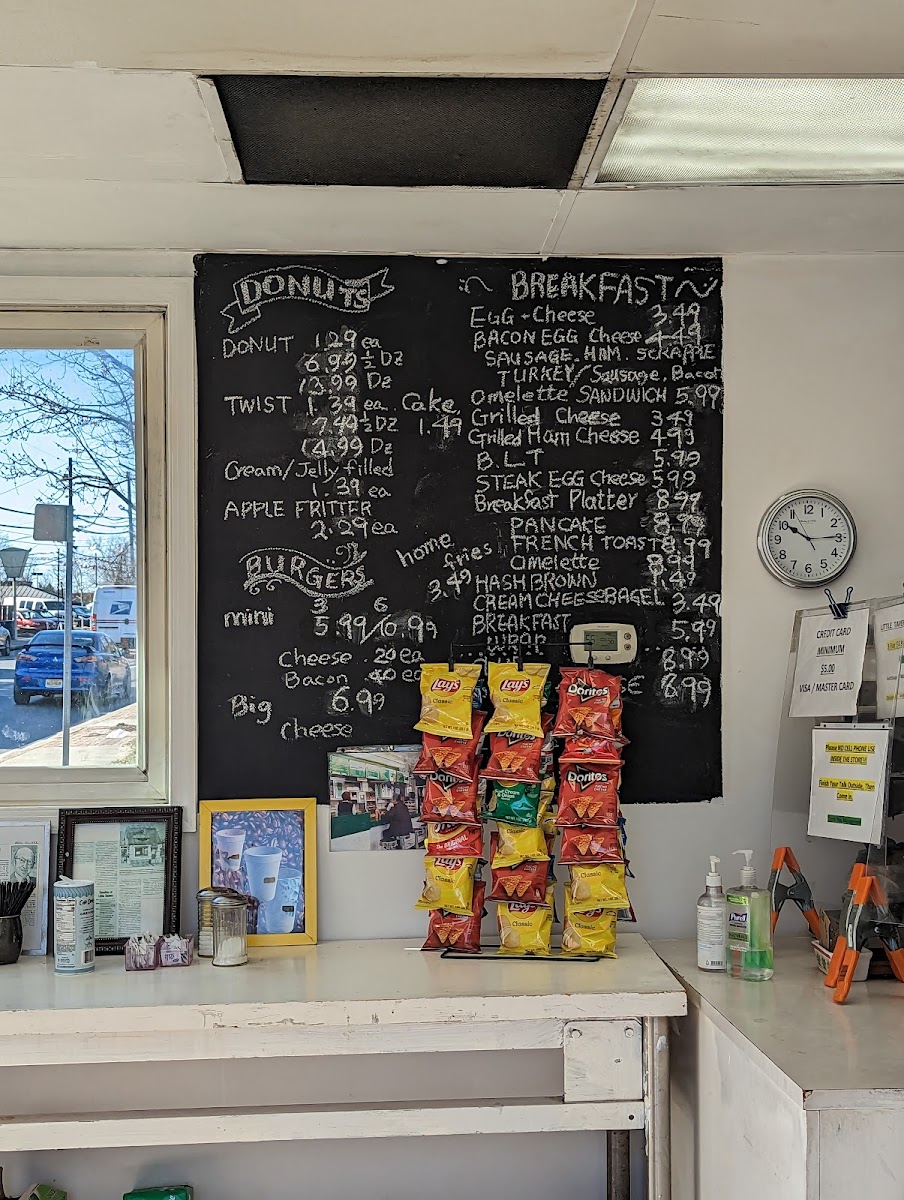 DONUTS
DONUT 1.29 ea
6.99 ½ Dz
13.99 Dz
TWIST 1.39 ea
7.49 ½ Dz
14.99 Dz
Cake
1.49
Cream/Jelly filled
1.39 ea
APPLE FRITTER
2.29 ea
BURGERS
3 6
mini 5.99/10.99
Cheese .20 ea
Bacon .40 ea
Big 6.99
Cheese
home
fries
3.49
~ BREAKFAST ~
EGG + Cheese 3.49
BACON EGG Cheese 4.49
SAUSAGE. HAM. SCRAPPLE
TURKEY/Sausage, Bacon
Omelette SANDWICH 5.99
Grilled Cheese 3.49
Grilled Ham Cheese 4.99
B.L.T 5.99
STEAK EGG Cheese 5.99
Breakfast Platter 8.99
PANCAKE
FRENCH TOAST 8.99
Omelette 8.99
HASH BROWN 1.49
CREAM CHEESE BAGEL 3.49
BREAKFAST 5.99
WRAP
8.99
8.99
Lay's
Classic
Lay's
Classic
Doritos
Doritos
Doritos
Doritos
The ORIGINAL
Lay's
Classic
Classic
Classic
Classic
Classic
12
1
2
3
4
5
6
7
8
9
10
11
CREDIT CARD
MINIMUM
$5.00
VISA / MASTER CARD
Please NO CELL PHONE USE
INSIDE THE STORE!!!
Finish Your Talk Outside, Then
Come in.
Purell